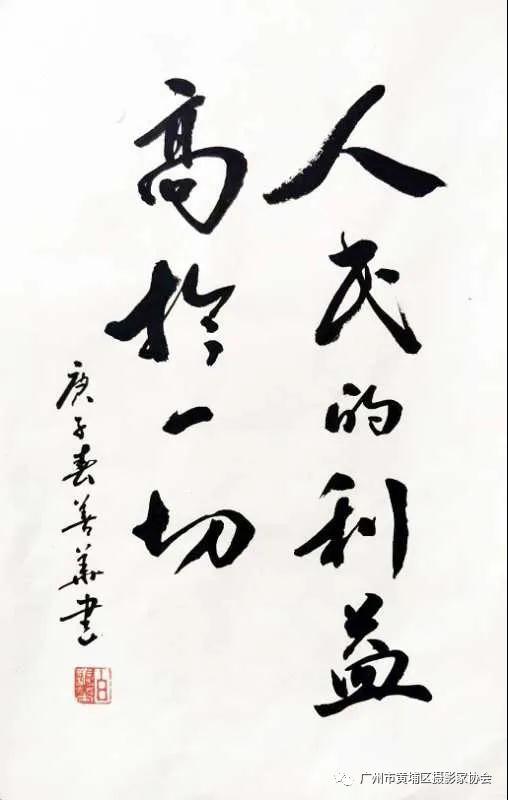 人民的利益
高於一切
庚子春善華書
广州市黄埔区摄影家协会